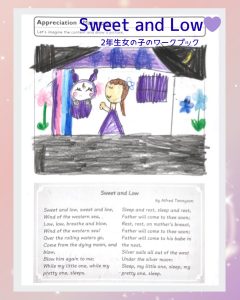 Appreciation
Sweet and Low
Let's imagine the
2年生女の子のワークブック
Sweet and Low
by Alfred Tennyson
Sweet and low, sweet and low,
Wind of the western sea,
Low, low, breathe and blow,
Wind of the western sea!
Over the rolling waters go,
Come from the dying moon, and
blow,
Blow him again to me;
While my little one, while my
pretty one, sleeps.
Sleep and rest, sleep and rest,
Father will come to thee soon;
Rest, rest, on mother's breast,
Father will come to thee soon;
Father will come to his babe in
the nest,
Silver sails all out of the west
Under the silver moon:
Sleep, my little one, sleep, my
pretty one, sleep.